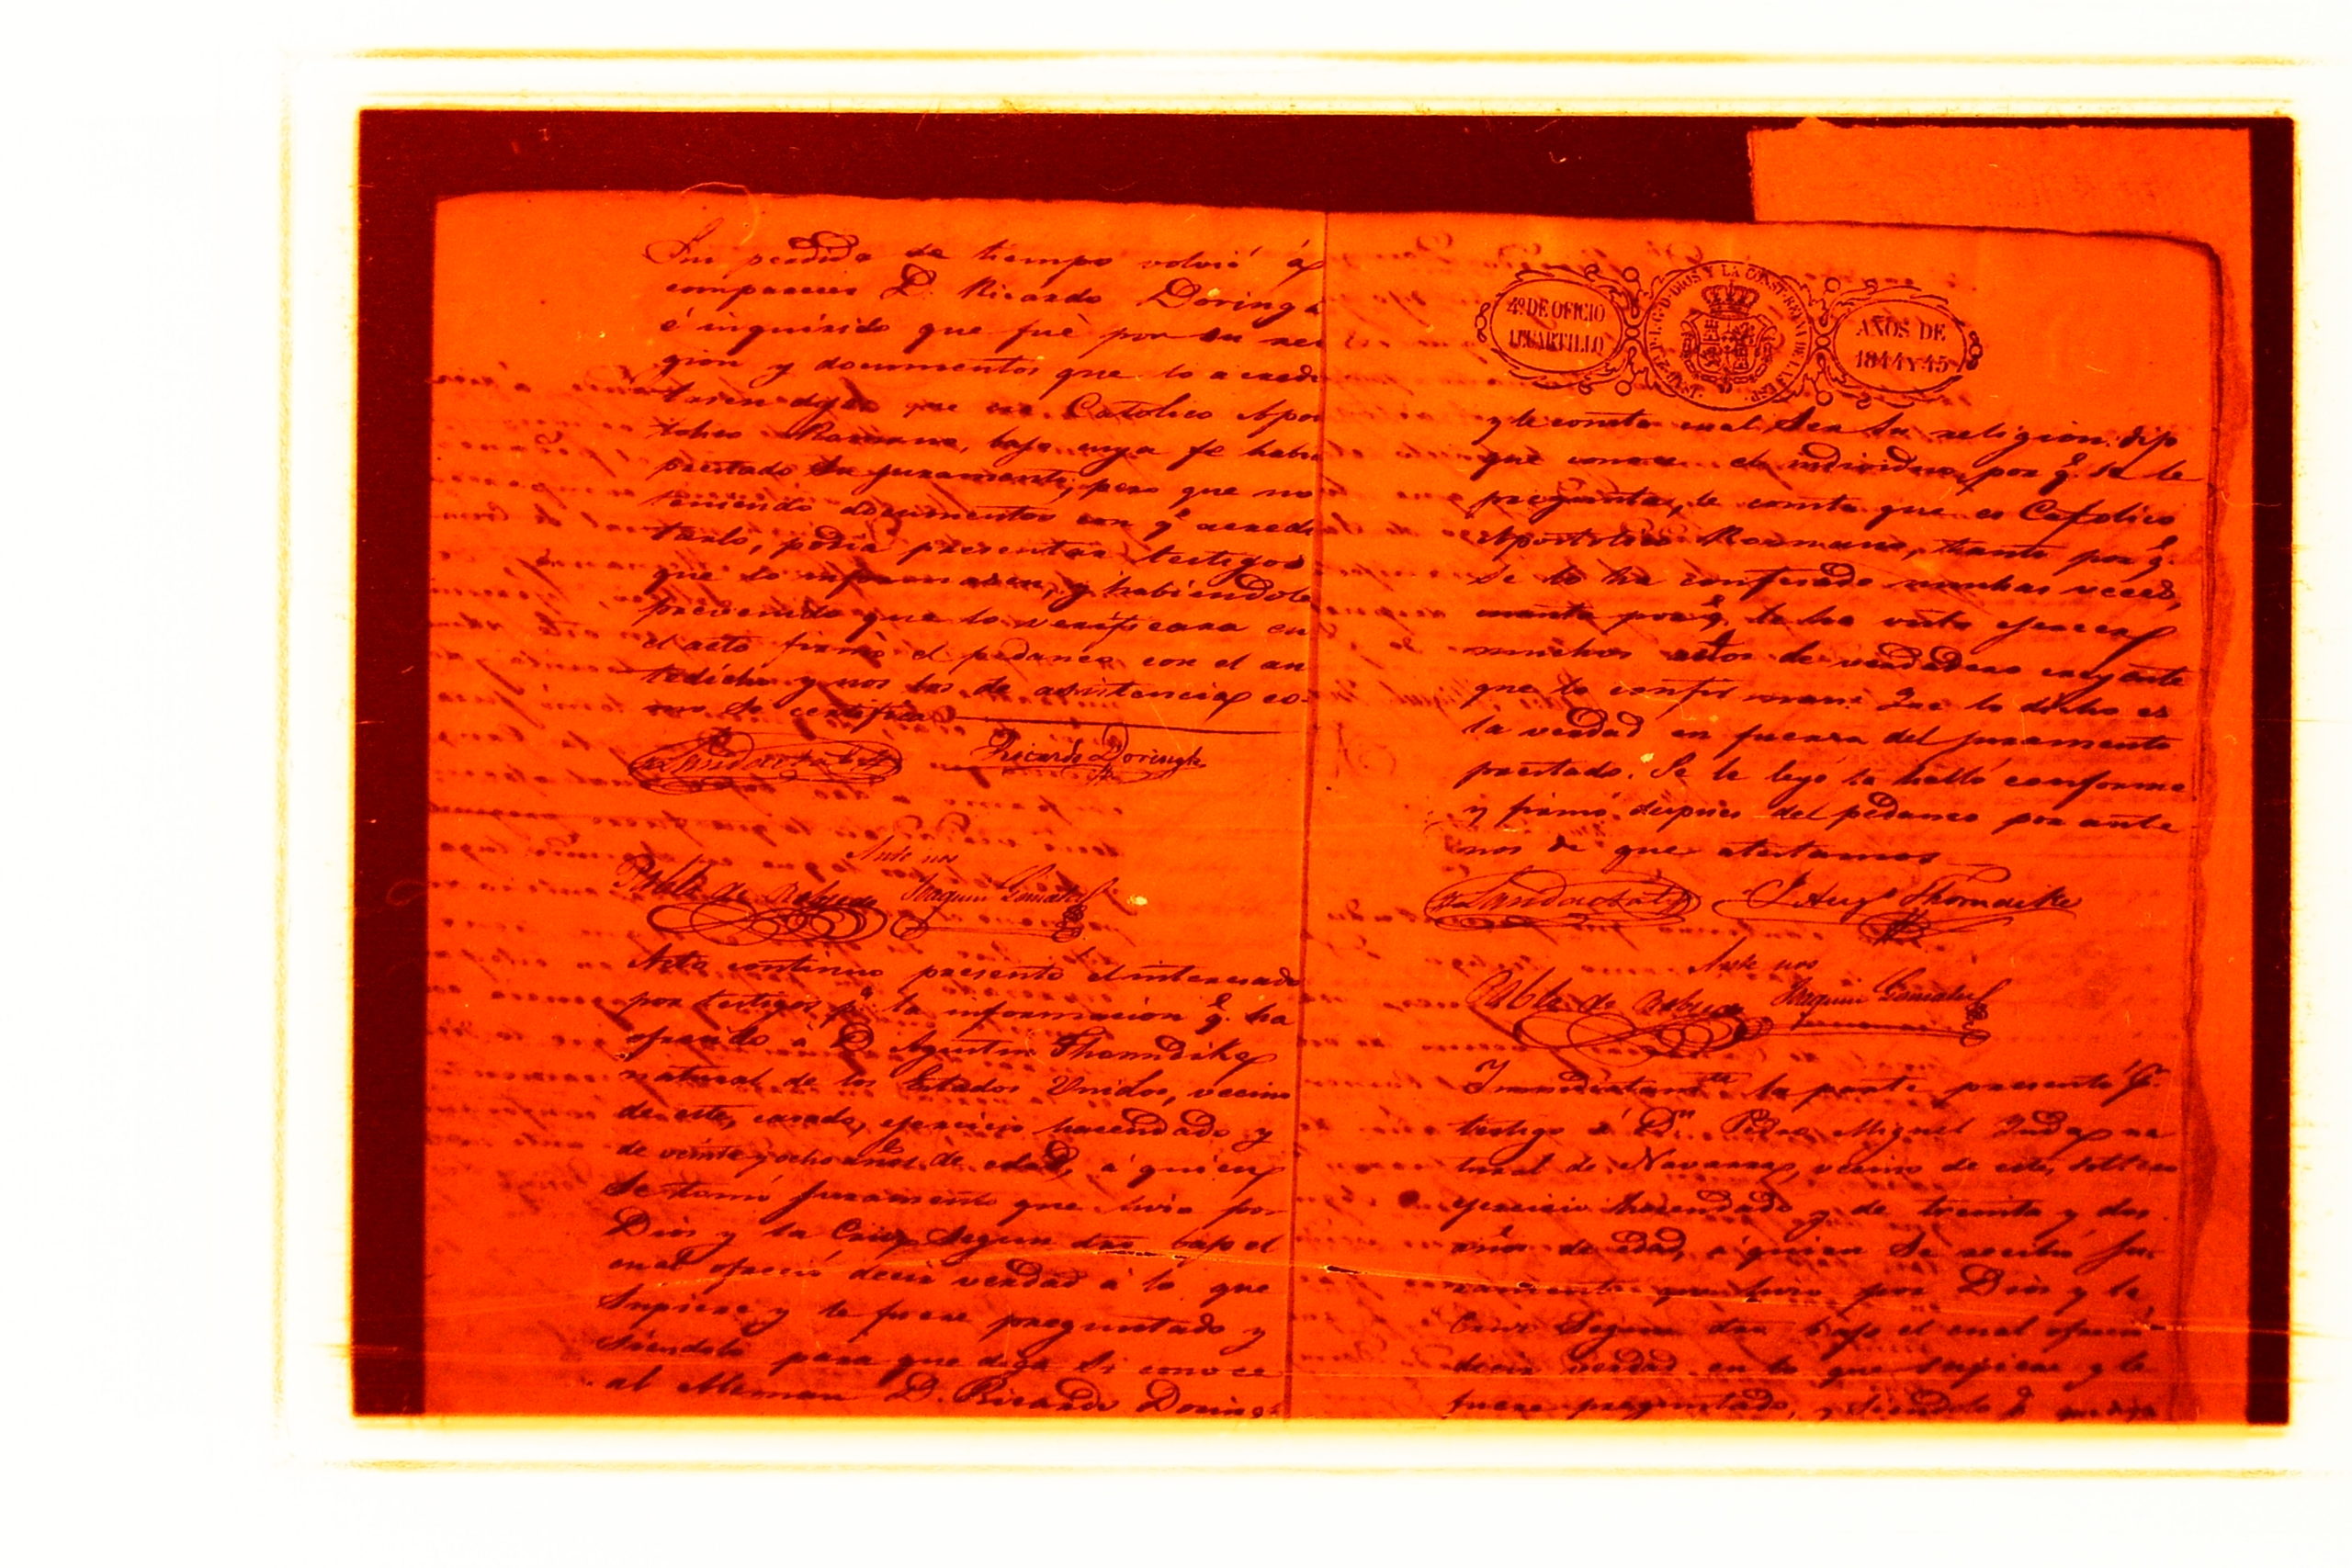 Sin perdida de tiempo volvió á
comparecer D. Ricardo Doringh
é inquirido que fué por su reli
gion y documentos que lo acredi
tasen dijo que era Catolico Apos
tolico Romano, bajo cuya fe habia
prestado su juramento, pero que no
teniendo documentos con qe. acredi
tarlo, podia presentar testigos
que lo informasen, y habiendole
prevenido que lo verificara en
el acto firmó el pedaneo con el an
tedicho y nos los de asistencia co-
mo se certifica
Ricardo Doringh
Ante nos
Pablo de Joaquin Gonzalez
Acto continuo presentó el interesado
por testigos pa. la información q. ha
ofrecido á D. Agustin Thorndike
natural de los Estados Unidos, vecino
de este, casado, ejercicio hacendado y
de veinte y ocho años de edad, á quien
se tomó juramento que hizo por
Dios y la Cruz segun dro bajo el
cual ofreció decir verdad á lo que
supiere y le fuere preguntado y
siendolo para que diga si conoce
al Aleman D. Ricardo Doringh
4º. DE OFICIO
UN CUARTILLO
P. L. G. D. DIOS Y LA CONST. REYNA DE LAS ESP.
AÑOS DE
1844 Y 45
y le consta cual sea su religion: dijo
que conoce el individuo por q. se le
pregunta, le consta que es Catolico
Apostolico Romano, tanto por q.
se lo ha confesado muchas veces,
cuanto por q. le ha visto ejercer
muchos actos de verdadero creyente
que lo confirman: Que lo dicho es
la verdad en fuerza del juramento
prestado. Se le leyó la halló conforme
y firmó despues del pedaneo por ante
nos de que atestamos
J. Augs. Thorndike
Ante nos
Pablo de Joaquin Gonzalez
Inmediatamte. la parte presentó pr.
testigo á Dn. Pedro Miguel na
tural de Navarra, vecino de este, soltero
ejercicio hacendado y de treinta y dos
años de edad, á quien se recibió ju-
ramento que hizo por Dios y la
Cruz segun dro bajo el cual ofreció
decir verdad en lo que supiere y le
fuere preguntado, y siendolo p. que diga